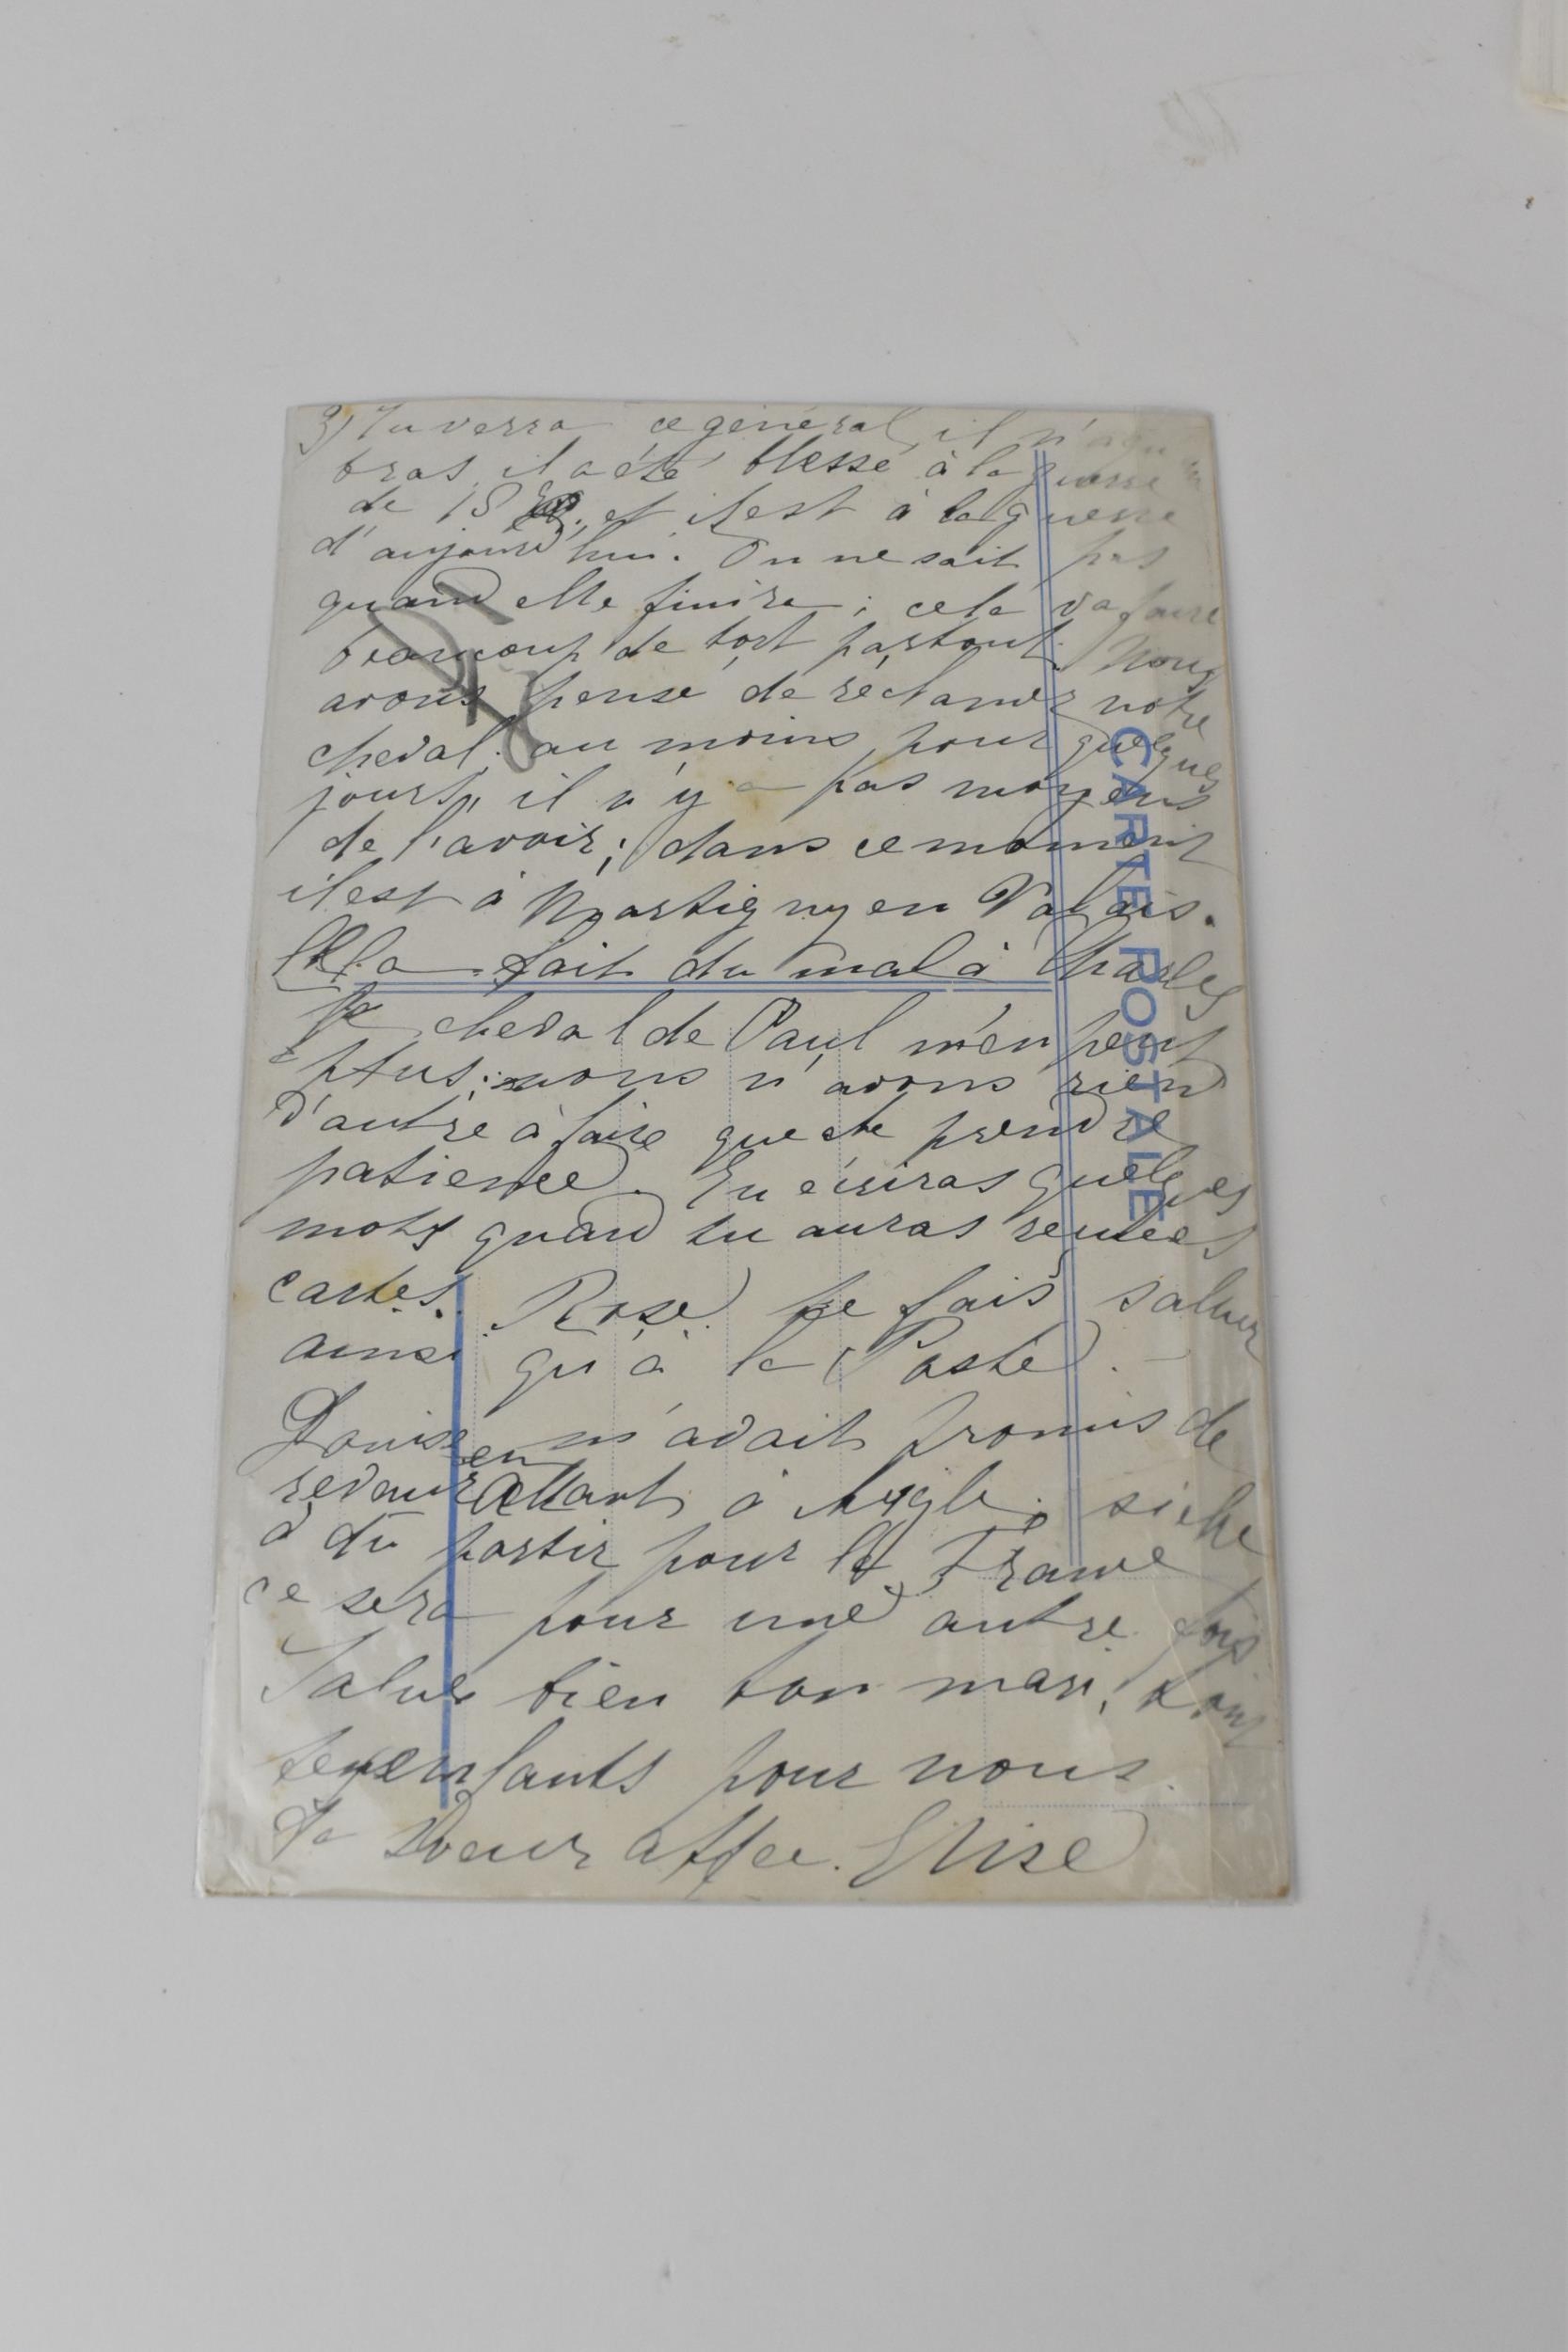 3) Tu verra ce général, il n'a qu'un
bras, il a été blessé à la guerre
de 18 et il est à la guerre
d'aujourd'hui. On ne sait pas
quand elle finira ; cela va faire
beaucoup de tort partout. Nous
avons pensé de réclamer notre
cheval; au moins pour quelques
jours, il n'y a pas moyens
de l'avoir; dans ce moment
il est à Martigny en Valais.
fait du mal à Charles
le cheval de Paul n'en peut
plus; nous n'avons rien
d'autre à faire que de prendre
patience. Tu écriras quelques
mots quand tu auras reçu ces
cartes. Rose te fais saluer
ainsi qu'à la Poste. -
Louise m'avait promis de
revenir en allant à Aigle; si elle
a dû partir pour la France
ce sera pour une autre fois.
Salue bien ton mari, tous
tes enfants pour nous.
Ta Soeur affec. Elise
CARTE POSTALE